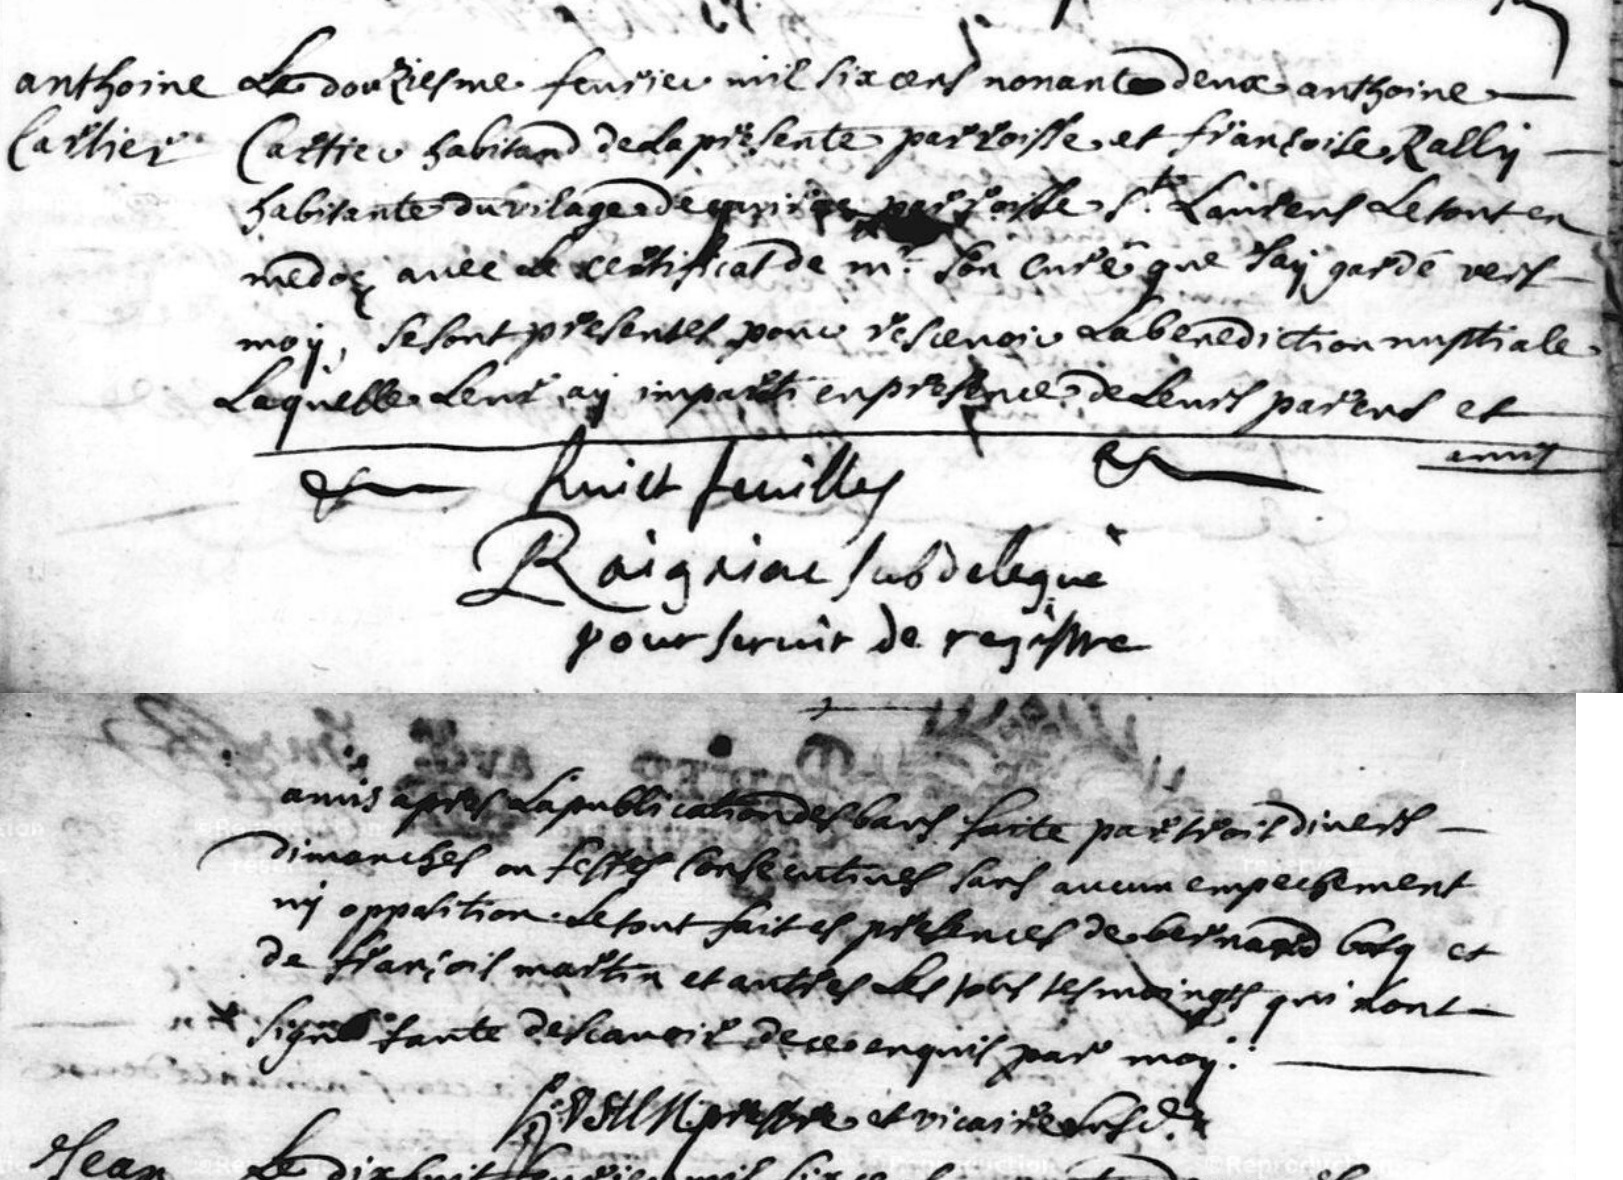 anthoine
Cartier
Le douziesme feurier mil six cens nonante deux anthoine
Cartier habitand de la presente parroisse et françoise Rally
habitante du vilage de parroisse St Laurens Le tout en
medoc, auec Le certificat de mr. son curé que Jay gardé vers
moy, se sont presentes pour rescevoir La benediction nuptiale
Laquelle Leur ay imparti en presence de Leurs parens et
amis
huict feuilles
Raignac subdelegué
pour seruir de registre
amis apres La publication des bans faite par trois diuers
dimanches ou festes consecutiues sans aucun empechement
ny opposition. Le tout fait es presences de bernard bosq et
de françois martin et autres Les pns tesmoingts qui n'ont
signé faute de scauoir de ce enquis par moy.
prestre et vicaire
Jean
Le dixhuit feurier mil six cens